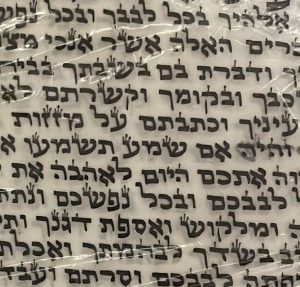 אלהיך בכל לבבך ובכל נפש
ברים האלה אשר אנכי מצו
ודברת בם בשבתך בביתך
כבך ובקומך וקשרתם לא
עיניך וכתבתם על מזזות
והיה אם שמע תשמעו א
וה אתכם היום לאהבה את
לבבכם ובכל נפשכם ונתתי
ומלקוש ואספת דגנך ותי
בשדך לבהמתך ואכלת
לבבכם וסרתם ועבד